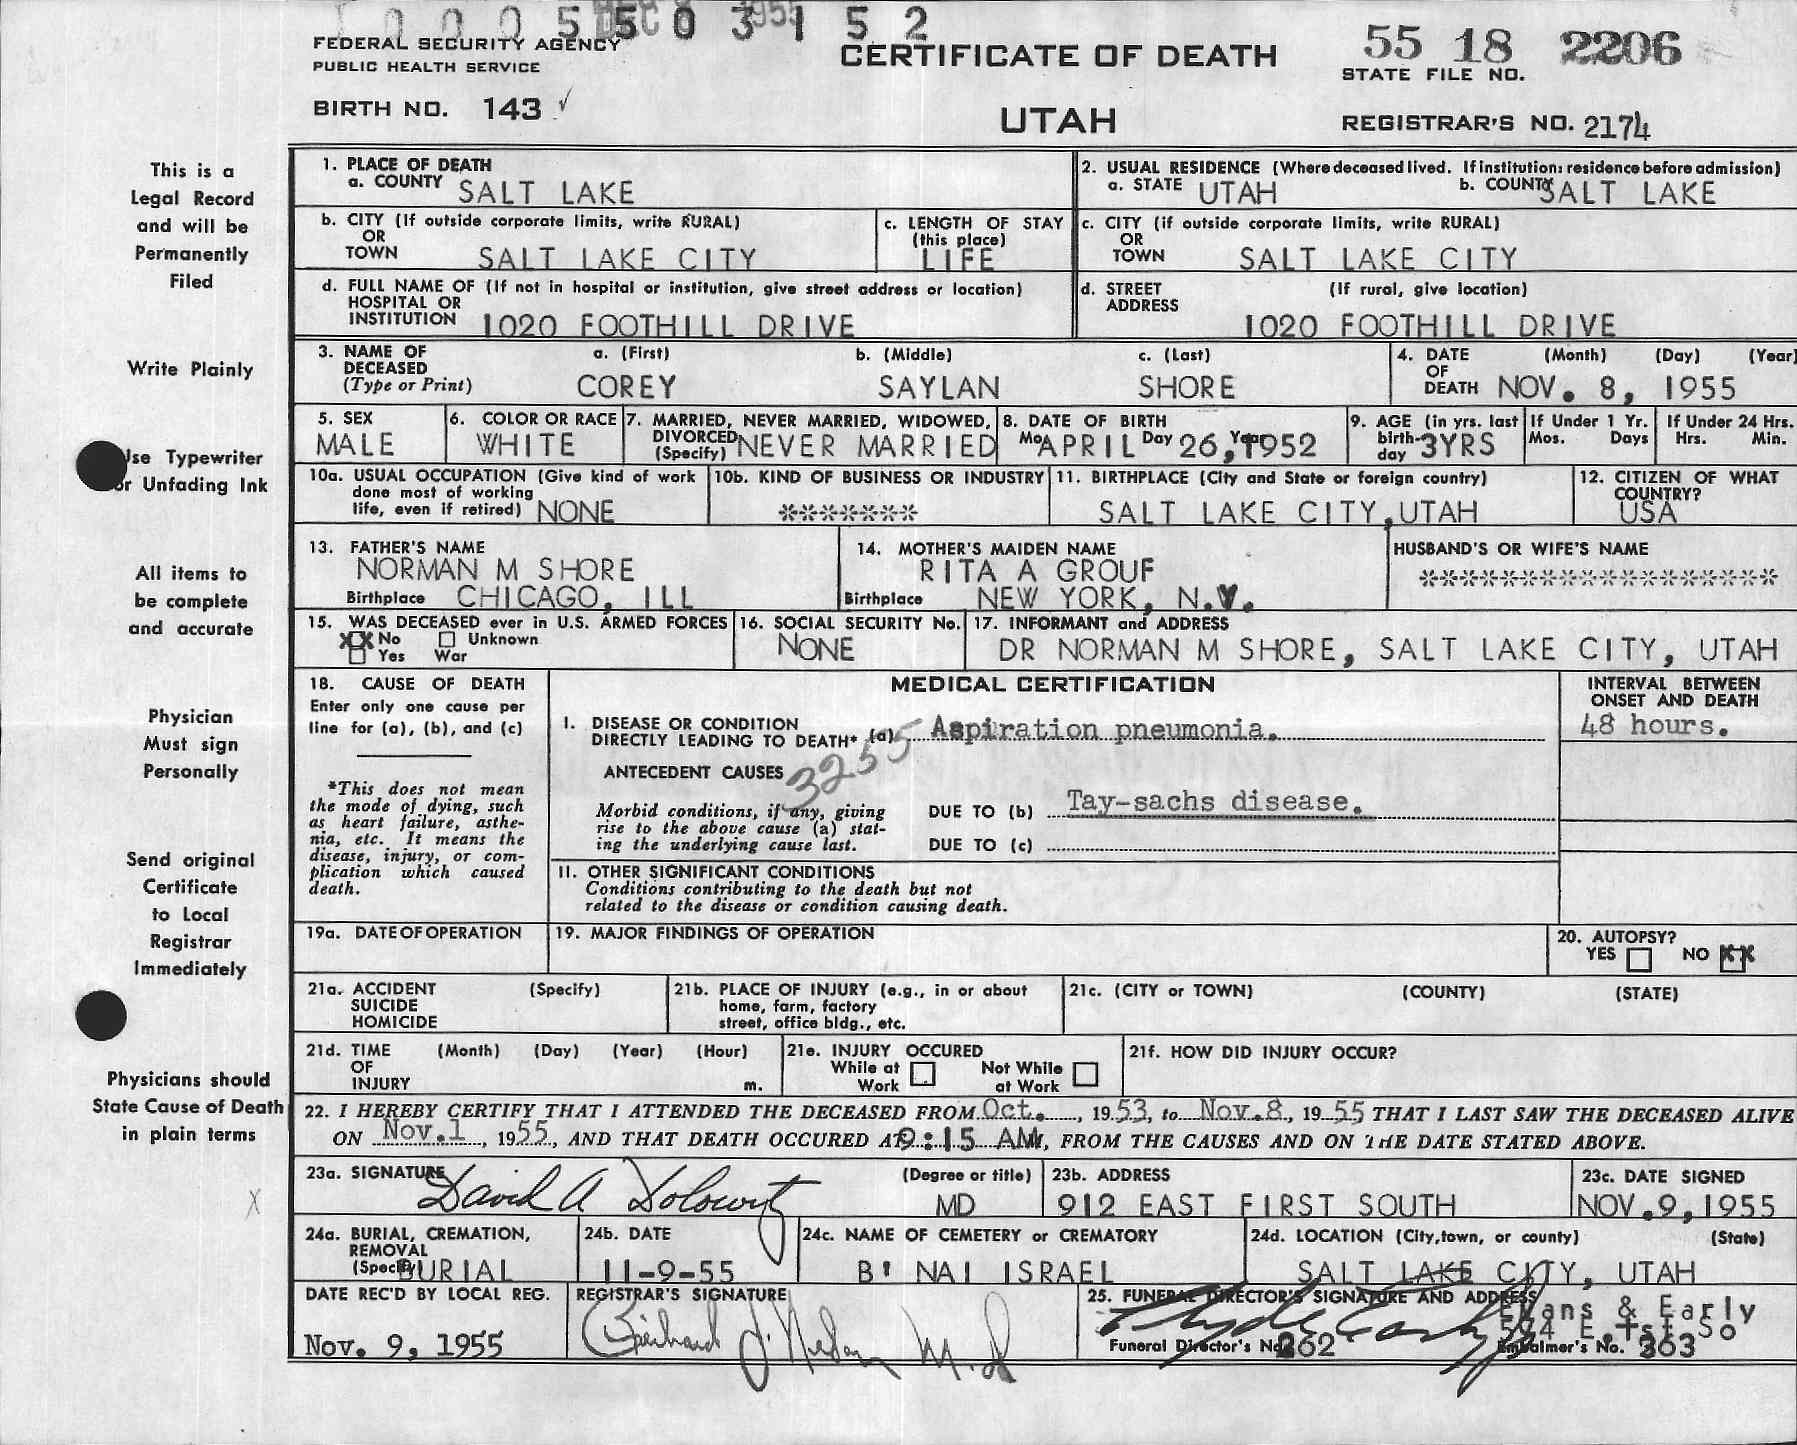 1 0 0 0 5 5 0 3 1 5 2
DEC 1955
FEDERAL SECURITY AGENCY
PUBLIC HEALTH SERVICE
CERTIFICATE OF DEATH
55 18 2206
STATE FILE NO.
BIRTH NO. 143 ✓
UTAH
REGISTRAR'S NO. 2174
This is a
Legal Record
and will be
Permanently
Filed
Write Plainly
Use Typewriter
or Unfading Ink
All items to
be complete
and accurate
Physician
Must sign
Personally
Send original
Certificate
to Local
Registrar
Immediately
Physicians should
State Cause of Death
in plain terms
X
1. PLACE OF DEATH
a. COUNTY SALT LAKE
2. USUAL RESIDENCE (Where deceased lived. If institution: residence before admission)
a. STATE UTAH b. COUNTY SALT LAKE
b. CITY (If outside corporate limits, write RURAL)
OR
TOWN SALT LAKE CITY
c. LENGTH OF STAY
(this place)
LIFE
c. CITY (if outside corporate limits, write RURAL)
OR
TOWN SALT LAKE CITY
d. FULL NAME OF (If not in hospital or institution, give street address or location)
HOSPITAL OR
INSTITUTION 1020 FOOTHILL DRIVE
d. STREET (If rural, give location)
ADDRESS
1020 FOOTHILL DRIVE
3. NAME OF a. (First) b. (Middle) c. (Last)
DECEASED
(Type or Print) COREY SAYLAN SHORE
4. DATE (Month) (Day) (Year)
OF
DEATH NOV. 8, 1955
5. SEX
MALE
6. COLOR OR RACE
WHITE
7. MARRIED, NEVER MARRIED, WIDOWED,
DIVORCED
(Specify) NEVER MARRIED
8. DATE OF BIRTH
Mo. APRIL Day 26, Year 1952
9. AGE (in yrs. last
birth-
day 3YRS
If Under 1 Yr.
Mos. Days
If Under 24 Hrs.
Hrs. Min.
10a. USUAL OCCUPATION (Give kind of work
done most of working
life, even if retired) NONE
10b. KIND OF BUSINESS OR INDUSTRY
*******
11. BIRTHPLACE (City and State or foreign country)
SALT LAKE CITY, UTAH
12. CITIZEN OF WHAT
COUNTRY?
USA
13. FATHER'S NAME
NORMAN M SHORE
Birthplace CHICAGO, ILL
14. MOTHER'S MAIDEN NAME
RITA A GROUF
Birthplace NEW YORK, N.Y.
HUSBAND'S OR WIFE'S NAME
******************
15. WAS DECEASED ever in U.S. ARMED FORCES
XX No Unknown
Yes War
16. SOCIAL SECURITY No.
NONE
17. INFORMANT and ADDRESS
DR NORMAN M SHORE, SALT LAKE CITY, UTAH
18. CAUSE OF DEATH
Enter only one cause per
line for (a), (b), and (c)
*This does not mean
the mode of dying, such
as heart failure, asthe-
nia, etc. It means the
disease, injury, or com-
plication which caused
death.
MEDICAL CERTIFICATION
INTERVAL BETWEEN
ONSET AND DEATH
48 hours.
I. DISEASE OR CONDITION
DIRECTLY LEADING TO DEATH* (a) Aspiration pneumonia.
3255
ANTECEDENT CAUSES
Morbid conditions, if any, giving
rise to the above cause (a) stat-
ing the underlying cause last.
DUE TO (b) Tay-sachs disease.
DUE TO (c)
II. OTHER SIGNIFICANT CONDITIONS
Conditions contributing to the death but not
related to the disease or condition causing death.
19a. DATE OF OPERATION
19. MAJOR FINDINGS OF OPERATION
20. AUTOPSY?
YES NO XX
21a. ACCIDENT (Specify)
SUICIDE
HOMICIDE
21b. PLACE OF INJURY (e.g., in or about
home, farm, factory
street, office bldg., etc.
21c. (CITY or TOWN) (COUNTY) (STATE)
21d. TIME (Month) (Day) (Year) (Hour)
OF
INJURY m.
21e. INJURY OCCURED
While at Not While
Work at Work
21f. HOW DID INJURY OCCUR?
22. I HEREBY CERTIFY THAT I ATTENDED THE DECEASED FROM Oct., 1953, to Nov.8, 1955 THAT I LAST SAW THE DECEASED ALIVE
ON Nov.1, 1955, AND THAT DEATH OCCURED AT 9:15 AM, FROM THE CAUSES AND ON THE DATE STATED ABOVE.
23a. SIGNATURE (Degree or title)
David A Dolowitz MD
23b. ADDRESS
912 EAST FIRST SOUTH
23c. DATE SIGNED
NOV.9,1955
24a. BURIAL, CREMATION,
REMOVAL
(Specify) BURIAL
24b. DATE
11-9-55
24c. NAME OF CEMETERY or CREMATORY
B' NAI ISRAEL
24d. LOCATION (City, town, or county) (State)
SALT LAKE CITY, UTAH
DATE REC'D BY LOCAL REG.
Nov. 9, 1955
REGISTRAR'S SIGNATURE
M.D
25. FUNERAL DIRECTOR'S SIGNATURE AND ADDRESS
Evans & Early
574 E. 1st So
Funeral Director's No. 262 Embalmer's No. 363